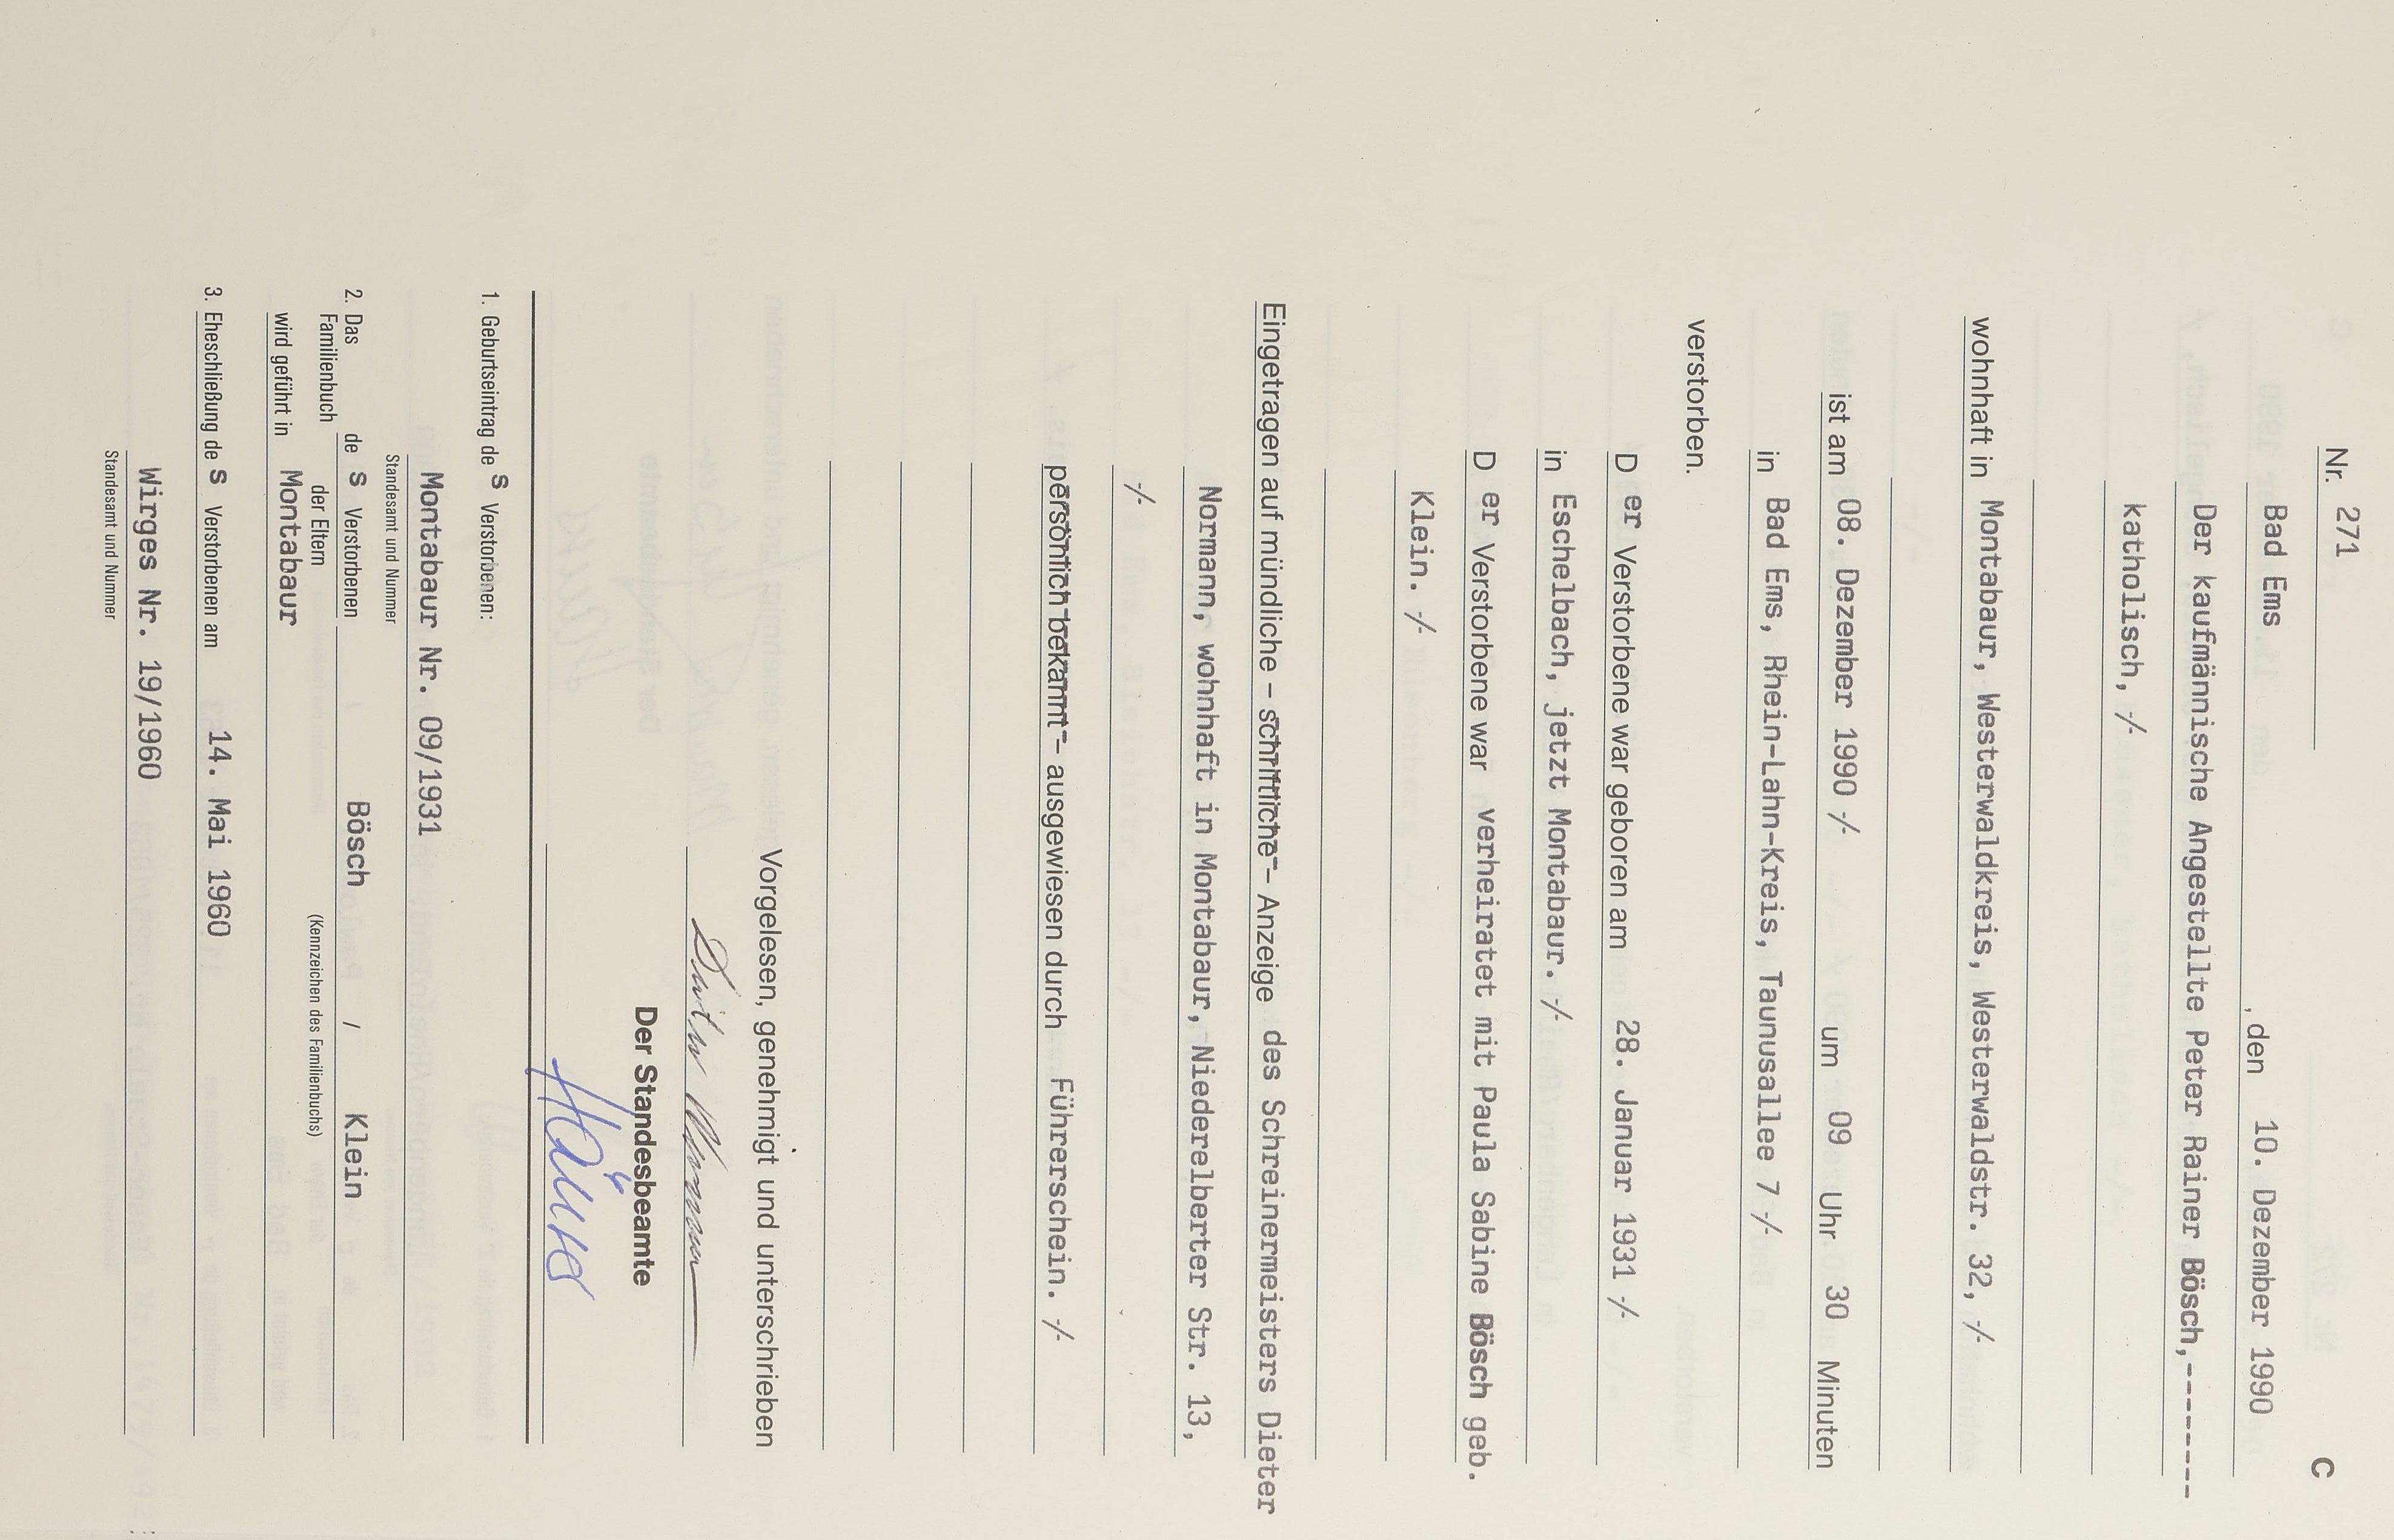 Nr. 271 C
Bad Ems , den 10. Dezember 1990
Der kaufmännische Angestellte Peter Rainer Bösch,-------
katholisch, -/-
wohnhaft in Montabaur, Westerwaldkreis, Westerwaldstr. 32, -/-
ist am 08. Dezember 1990 -/- um 09 Uhr 30 Minuten
in Bad Ems, Rhein-Lahn-Kreis, Taunusallee 7 -/-
verstorben.
D er Verstorbene war geboren am 28. Januar 1931 -/-
in Eschelbach, jetzt Montabaur. -/-
D er Verstorbene war verheiratet mit Paula Sabine Bösch geb.
Klein. -/-
Eingetragen auf mündliche – schriftliche – Anzeige des Schreinermeisters Dieter
Normann, wohnhaft in Montabaur, Niederelberter Str. 13,
-/-
persönlich bekannt – ausgewiesen durch Führerschein. -/-
Vorgelesen, genehmigt und unterschrieben
Dieter Normann
Der Standesbeamte
1. Geburtseintrag de s Verstorbenen:
Montabaur Nr. 09/1931
Standesamt und Nummer
2. Das Familienbuch de s Verstorbenen Bösch / Klein
der Eltern (Kennzeichen des Familienbuchs)
wird geführt in Montabaur
3. Eheschließung de s Verstorbenen am 14. Mai 1960
Wirges Nr. 19/1960
Standesamt und Nummer